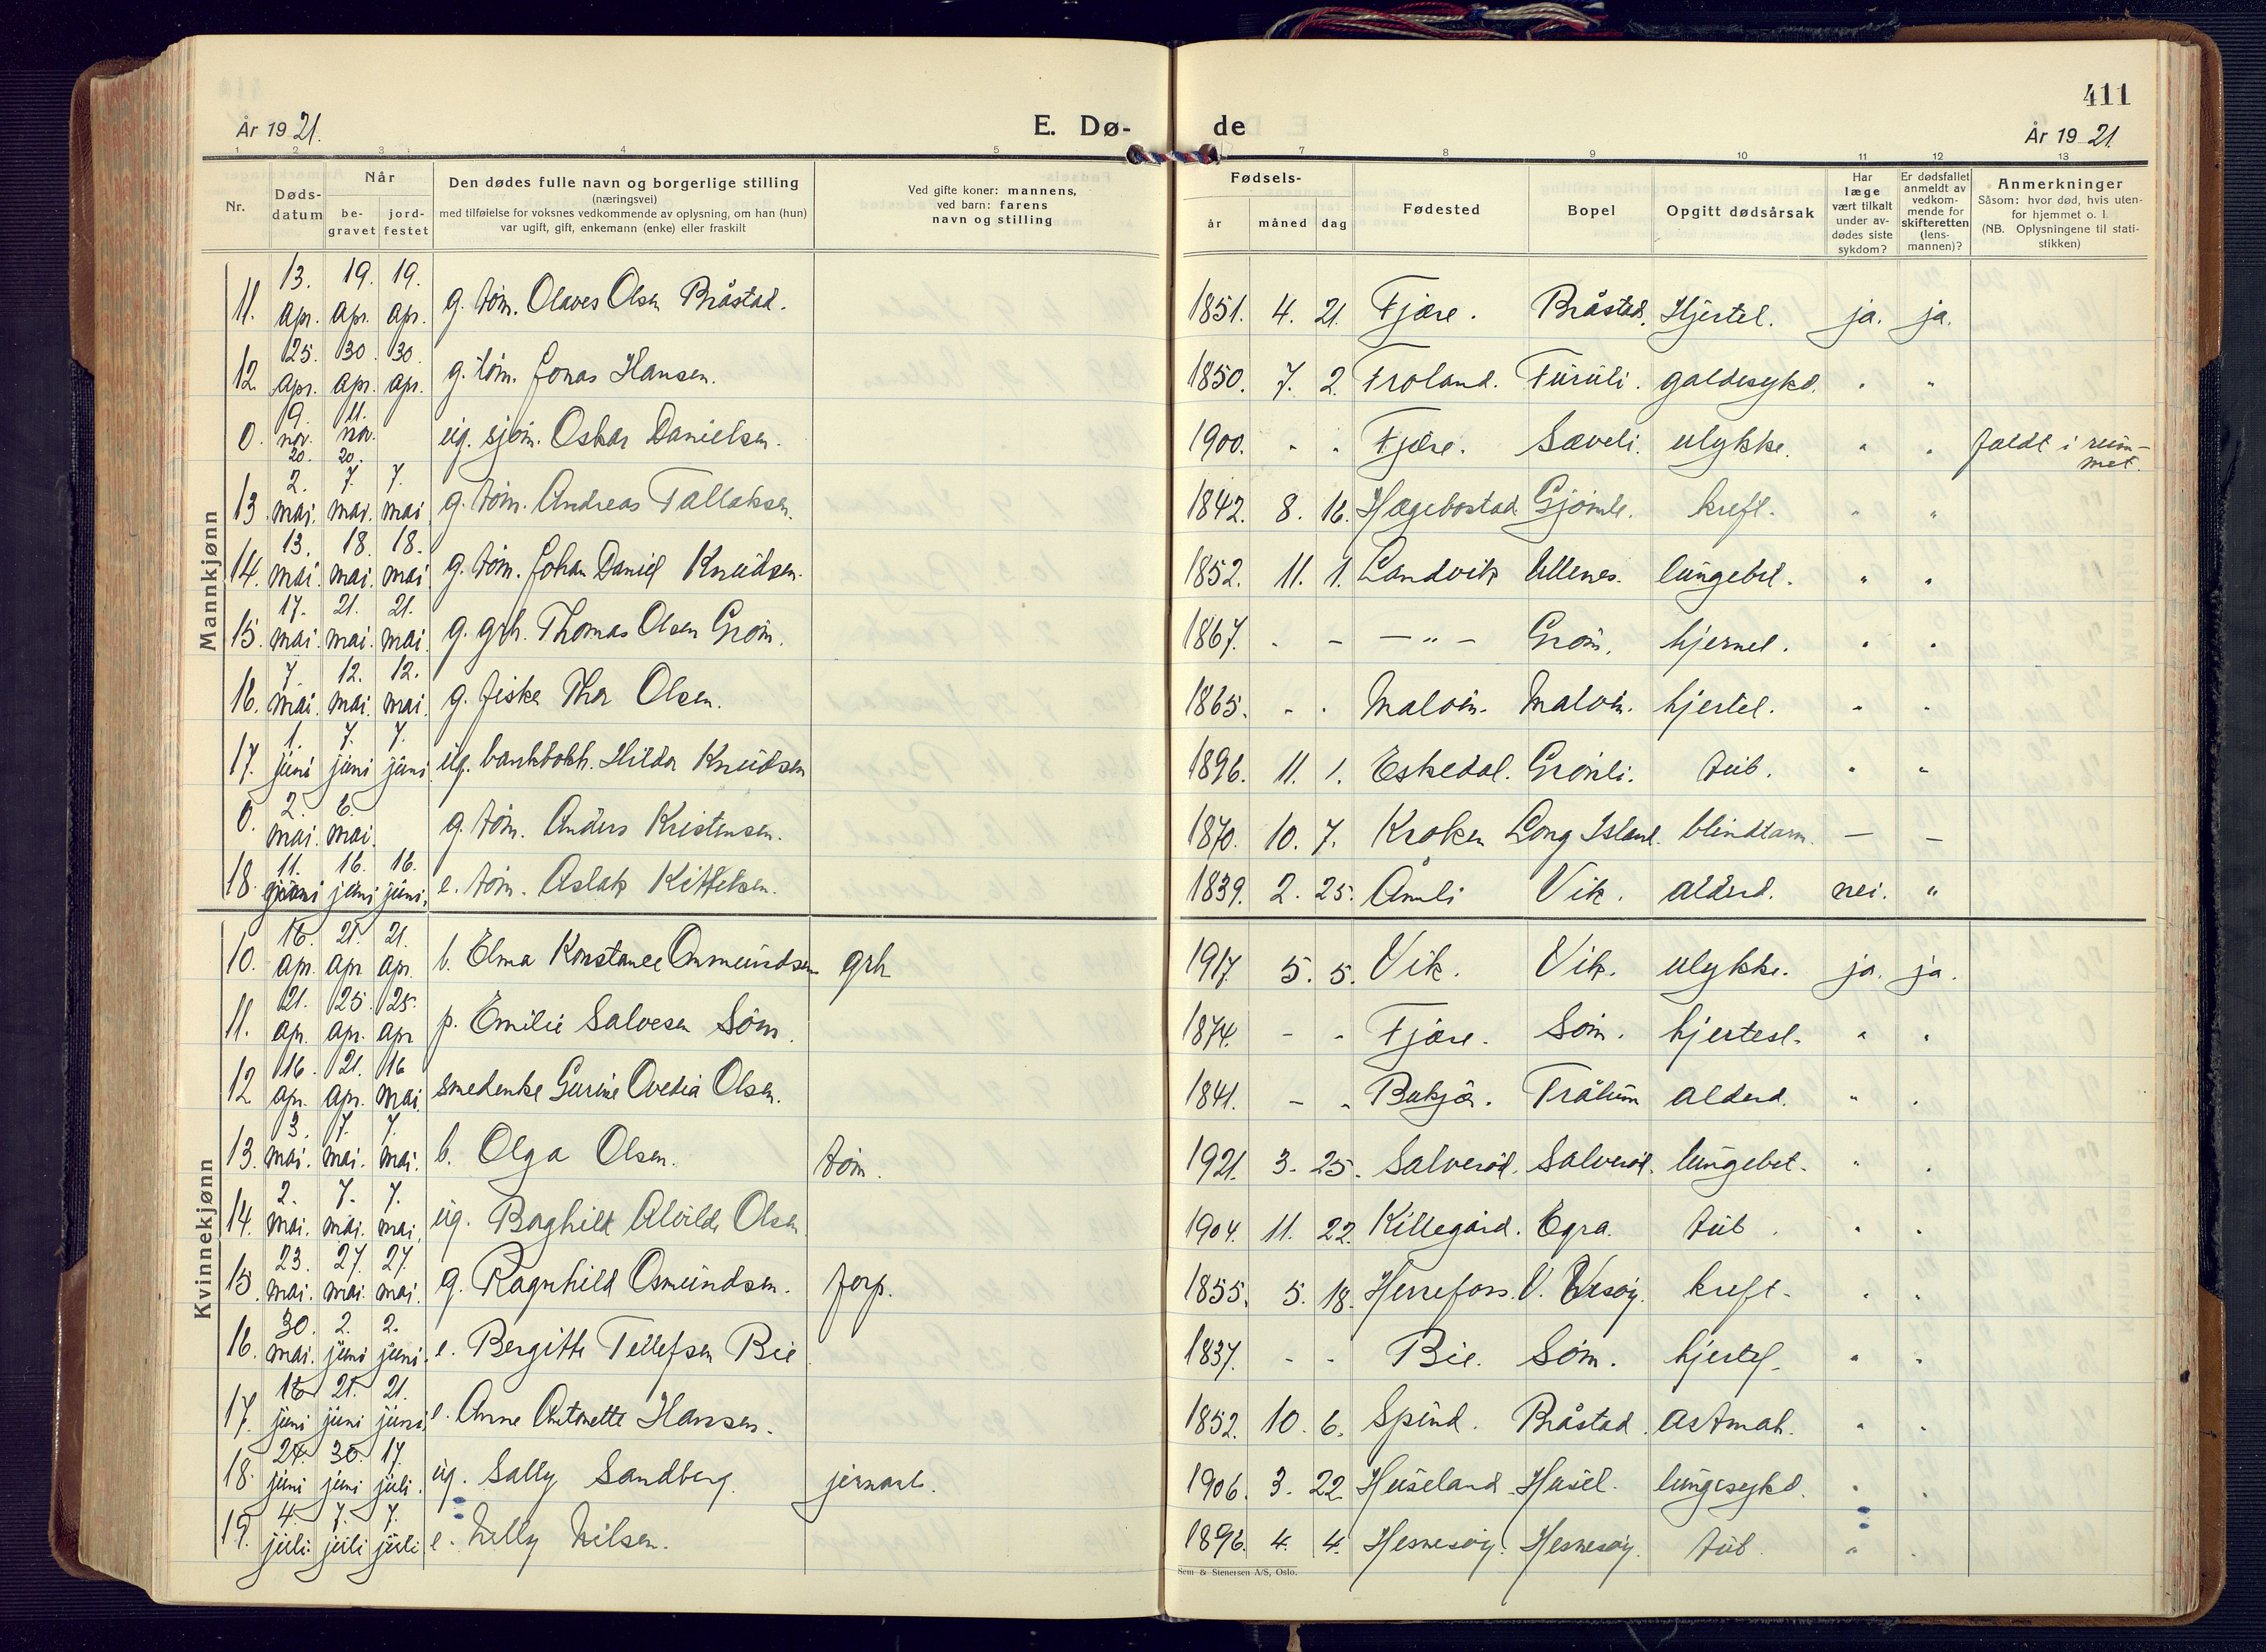 411
År 1921.
E. Dø-
de
År 1921.
1 2 3 4 5
7 8 9 10 11 12 13
Nr.
Døds-
datum
Når
be-
gravet
jord-
festet
Den dødes fulle navn og borgerlige stilling
(næringsvei)
med tilføielse for voksnes vedkommende av oplysning, om han (hun)
var ugift, gift, enkemann (enke) eller fraskilt
Ved gifte koner: mannens,
ved barn: farens
navn og stilling
Fødsels-
år måned dag
Fødested
Bopel
Opgitt dødsårsak
Har
læge
vært tilkalt
under av-
dødes siste
sykdom?
Er dødsfallet
anmeldt av
vedkom-
mende for
skifteretten
(lens-
mannen)?
Anmerkninger
Såsom: hvor død, hvis uten-
for hjemmet o. l.
(NB. Oplysningene til stati-
stikken)
Mannkjønn
11. 13. apr. 19. apr. 19. apr. g. tøm. Olaves Olsen Bråstad. 1851. 4. 21. Fjære. Bråstad. Hjertel. ja. ja.
12. 25. apr. 30. apr. 30. apr. g. tøm. Jonas Hansen. 1850. 7. 2. Froland. Furuli. galdesykd. " "
0. 9. nov. 20. 11. nov. 20. ug. sjøm. Oskar Danielsen. 1900. - - Fjære. Sæveli. ulykke. " " faldt i rum-
met.
13. 2. mai. 7. mai. 7. mai g. tøm. Andreas Tallaksen. 1842. 8. 16. Hægebostad Gjømle. kreft. " "
14. 13. mai. 18. mai. 18. mai g. tøm. Johan Daniel Knudsen. 1852. 11. 1. Landvik Ullenes. lungebet. " "
15. 17. mai. 21. mai. 21. mai. g. grb. Thomas Olsen Grom. 1867. - - — " — Grom. hjernel. " "
16. 7. mai. 12. mai. 12. mai. g. fisker Thor Olsen. 1865. - - Malvin. Malvin. hjertel. " "
17. 1. juni 7. juni 7. juni. ug. bankbokh. Hilda Knudsen 1896. 11. 1. Eskedal. Grønli. tub. " "
0. 2. mai. 6. mai. g. tøm. Anders Kristensen. 1870. 10. 7. Kroken Long Island. blindtarm. — —
18. 11. juni 16. juni 16. juni. e. tøm. Aslak Kittelsen. 1839. 2. 25. Åmli Vik. alderd. nei. "
Kvinnekjønn
10. 16. apr. 21. apr 21. apr. b. Elma Konstance Osmundsen grb 1917. 5. 5. Vik. Vik. ulykke. ja. ja.
11. 21. apr. 25. apr. 25. apr p. Emilie Salvesen Søm. 1874. - - Fjære. Søm. hjertesl. " "
12 16. apr. 21. apr. 16 mai. smedenke Gurine Ovedia Olsen. 1841. - - Bukjør. Trålum alderd. " "
13. 3. mai. 7. mai. 7. mai. b. Olga Olsen. tøm. 1921. 3. 25. Salverød. Salverød. lungebet. " "
14. 2. mai. 7. mai. 7. mai. ug. Borghild Alvilde Olsen 1904. 11. 22. Killegård. Egra. tub. " "
15. 23. mai. 27. mai. 27. mai. g. Ragnhild Osmundsen. forp. 1855. 5. 18. Herrefoss. V. kreft. " "
16. 30. mai. 2. juni 2. juni. e. Bergitte Tellefsen Bie 1837. - - Bie. Søm. hjertef. " "
17. 16 juni 21. juni 21. juni. e. Anne Antonette Hansen. 1852. 10. 6. Spind. Bråstad. astmah. " "
18. 24. juni 30. juni 17. juli. ug. Sally Sandberg. jernarb. 1906. 3. 22. Huseland Husel. lungesykd. " "
19. 4. juli. 7. juli 7. juli e. Nelly Nilsen. 1896. 4. 4. Hesnesøy. Hesnesøy. tub. " "
Sem & Stenersen A/S, Oslo.